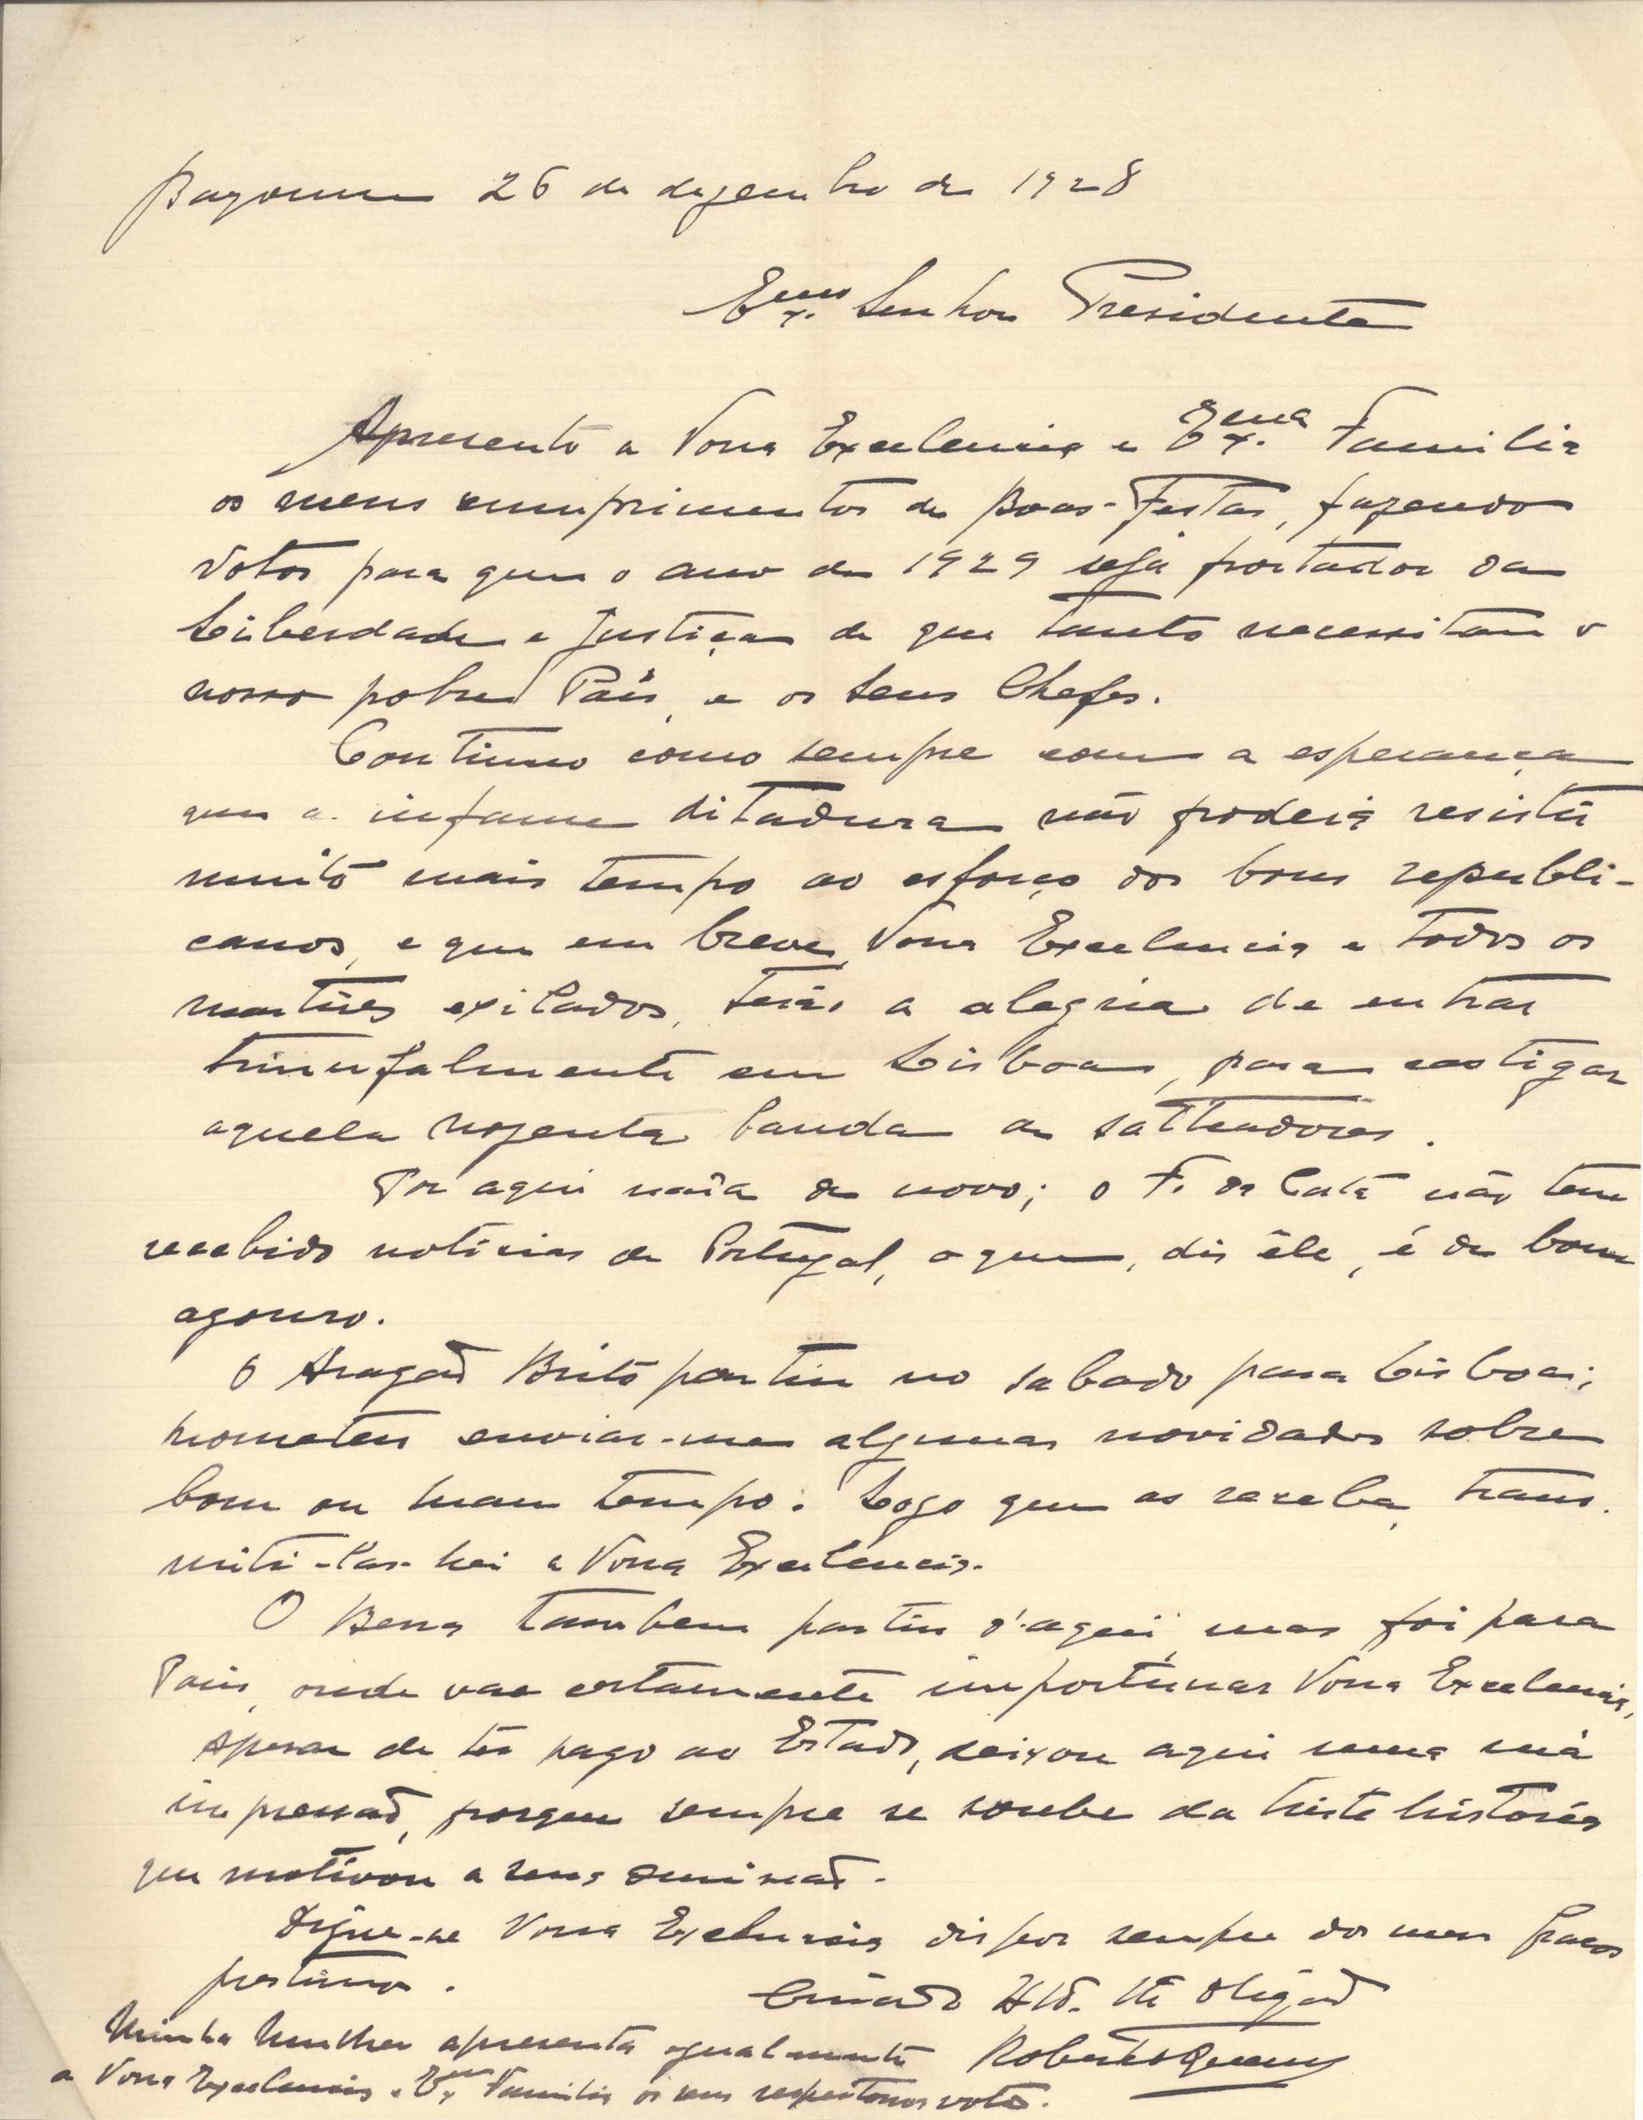 Bayonne 26 de dezembro de 1928
Exmo Senhor Presidente
Apresento a Vossa Excelencia e Exma Familia
os meus cumprimentos de Boas-Festas, fazendo
votos para que o ano de 1929 seja portador da
Liberdade e Justiça de que tanto necessitam o
nosso pobre País, e os seus Chefes.
Continuo como sempre com a esperança
que a infame ditadura não poderá resistir
muito mais tempo ao esforço dos bons republi-
canos, e que em breve, Vossa Excelencia e todos os
martires exilados, terão a alegria de entrar
triunfalmente em Lisboa, para castigar
aquela nojenta banda de salteadores.
Por aqui nada de novo; o F. da Costa não tem
recebido noticias de Portugal, o que, dis êle, é de bom
agouro.
O Aragão Brito partiu no sabado para Lisboa;
prometeu enviar-me algumas novidades sobre
bom ou mau tempo. Logo que as receba, trans-
miti-las-hei a Vossa Excelencia.
O tambem partiu d'aqui, mas foi para
Paris, onde vae certamente importunar Vossa Excelencia,
Apesar de ter pago ao Estado, deixou aqui uma má
impressão, porque sempre se soube da triste historia
que motivou a sua demissão.
Digne-se Vossa Excelencia dispor sempre do meu fraco
prestimo.
Criado Obrigado
Minha mulher apresenta igualmente Roberto
a Vossa Excelencia e Exma Familia os seus respeitosos votos.